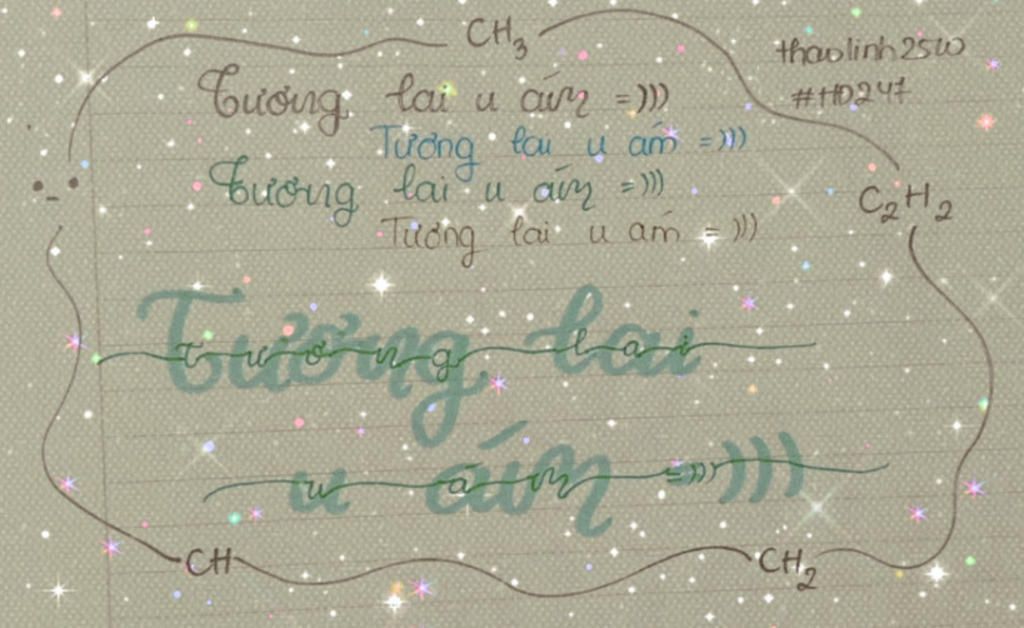 CH₃
thaolinh25w
#HD247
Tương lai u ám =)))
Tương lai u ám =)))
Tương lai u ám =)))
Tương lai u ám =)))
C₂H₂
Tương lai
Tương lai
u ám )))
u ám =)))
CH
CH₂